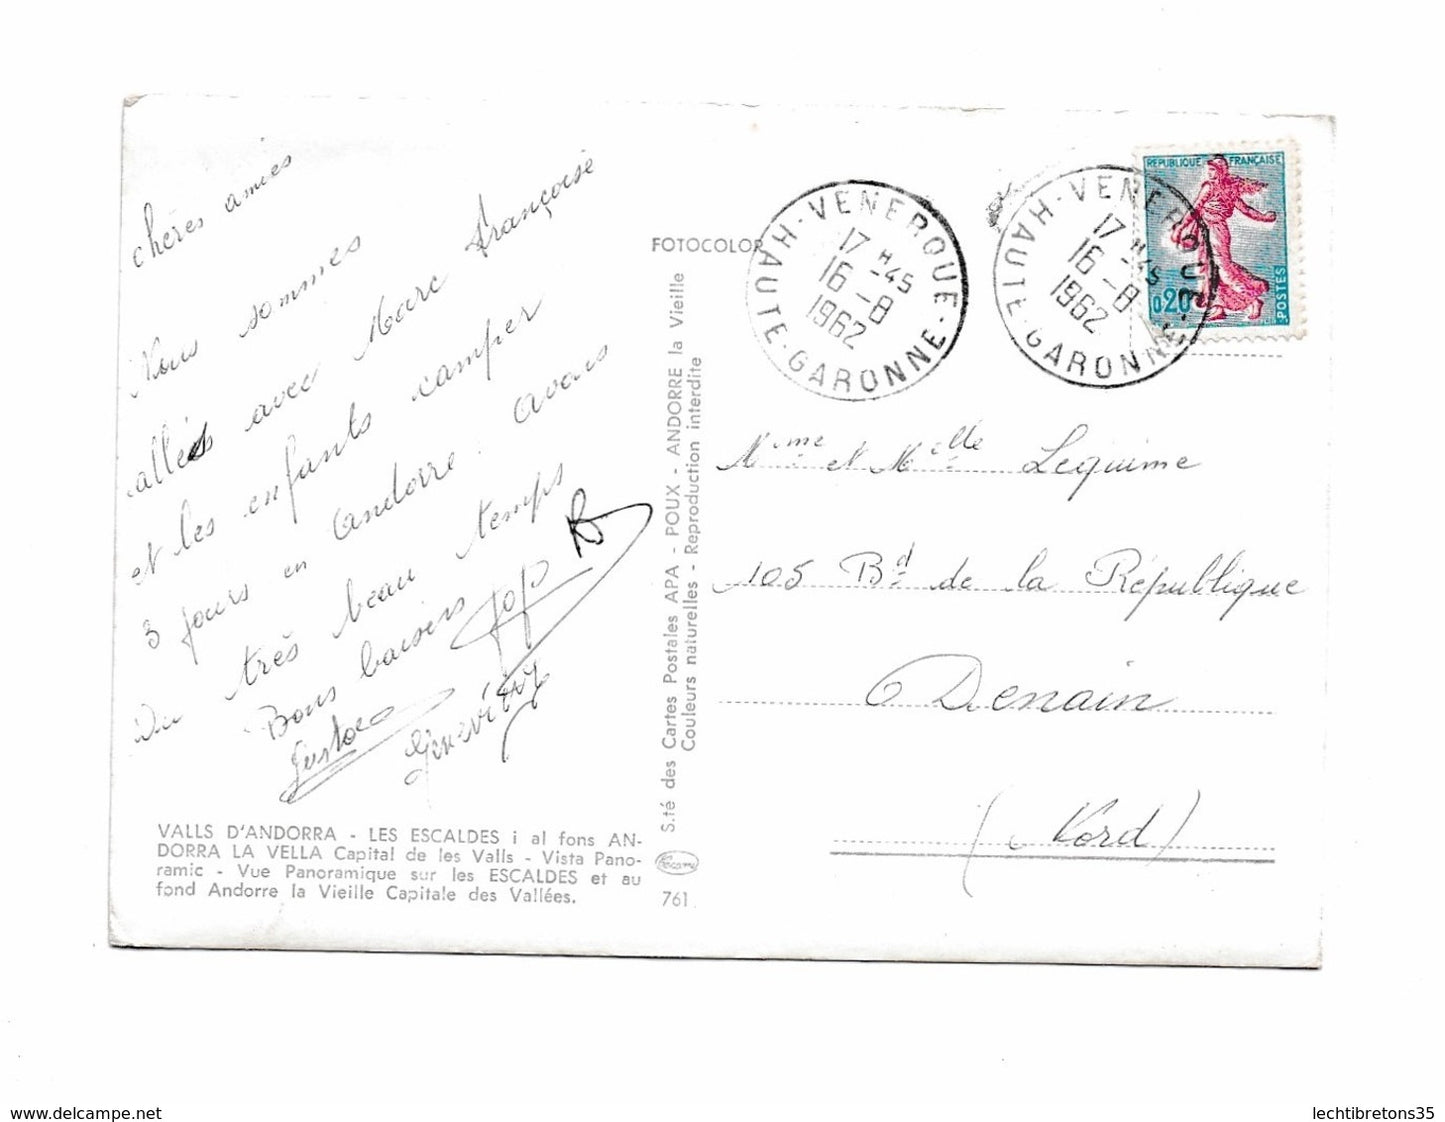 chères amies
Nous sommes
allés avec Marc Françoise
et les enfants camper
3 jours en Andorre. avons
Du très beau temps
Bons baisers Jojo
Geneviève
VALLS D'ANDORRA - LES ESCALDES i al fons AN-
DORRA LA VELLA Capital de les Valls - Vista Pano-
ramic - Vue Panoramique sur les ESCALDES et au
fond Andorre la Vieille Capitale des Vallées.
FOTOCOLOR
S.té des Cartes Postales APA - POUX - ANDORRE la Vieille
Couleurs naturelles - Reproduction interdite
761
VENERQUE
17 H 45
16 - 8
1962
HAUTE-GARONNE
VENERQUE
17 H 45
16 - 8
1962
HAUTE-GARONNE
REPUBLIQUE FRANÇAISE
0,20
POSTES
Mme et Melle Lequime
105 Bd de la République
Denain
(Nord)
www.delcampe.net
lechtibretons35